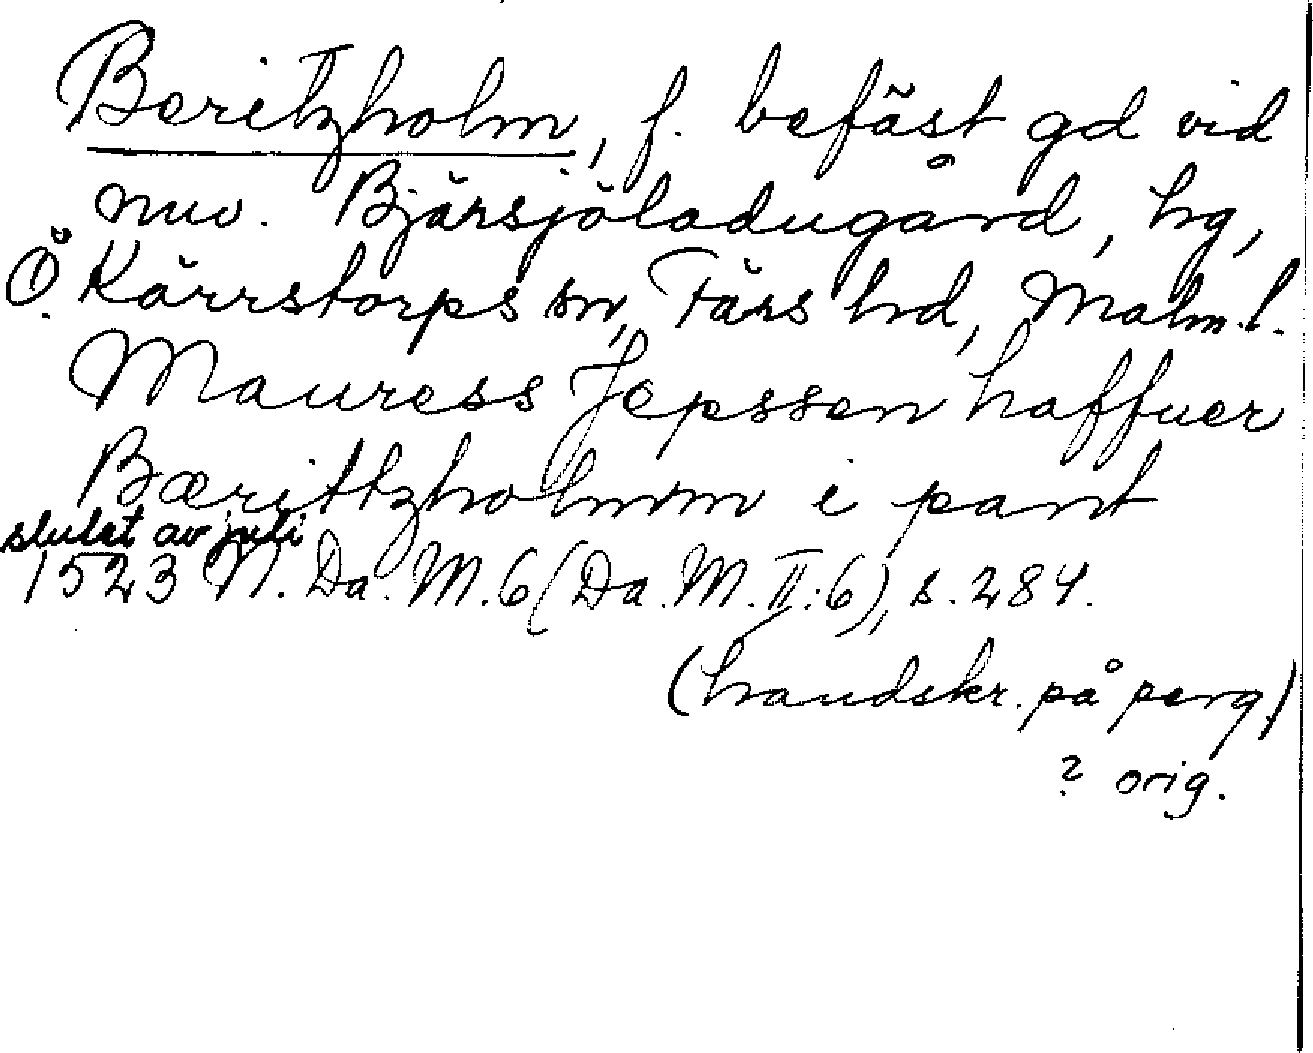 Beritzholm, f. befäst gd vid
nuv. Bjärsjöladugård, hg,
Ö. Kärrstorps sn, Färs hd, Malm. l.
Mauress Jepssen haffuer
Bærittzholmm i pant
slutet av juli
1523 N. Da. M. 6 (Da. M. II:6), s. 284.
(handskr. på perg.)
? orig.